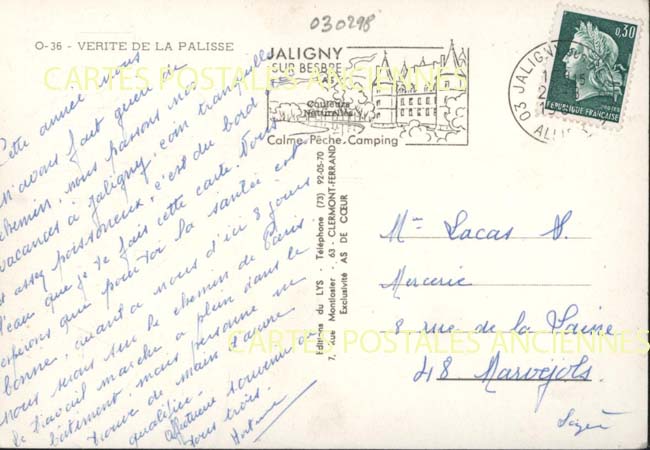 030298
O-36 - VERITE DE LA PALISSE
JALIGNY
SUR BESBRE
AS
Couleurs
Naturelles
Calme, Pêche, Camping
03 JALIGNY
ALLIER
0,30
REPUBLIQUE FRANÇAISE
CARTES POSTALES ANCIENNES
CARTES POSTALES ANCIENNES
Cette année nous
n'avons fait qu'en
chemin, nous passons nos
vacances a Jaligny, coin tranquille
et assez poissoneux, c'est du bord
d'eau que je te fais cette carte. Nous
espérons que pour toi la santée est
bonne, quant a nous d'ici 8 jours
nous serons sur le chemin de Paris
le travail marche a plein dans le
bâtiment, mais personne ne
trouve de main d'œuvre
qualifiée.
Affectueux souvenir de
tous trois.
Antoine
Editions du LYS - Téléphone (73) 92-05-70
7, Rue Montlosier - 63 - CLERMONT-FERRAND
Exclusivité AS DE CŒUR
Me Lacas
Mercerie
8 rue de la
48 Marvejols